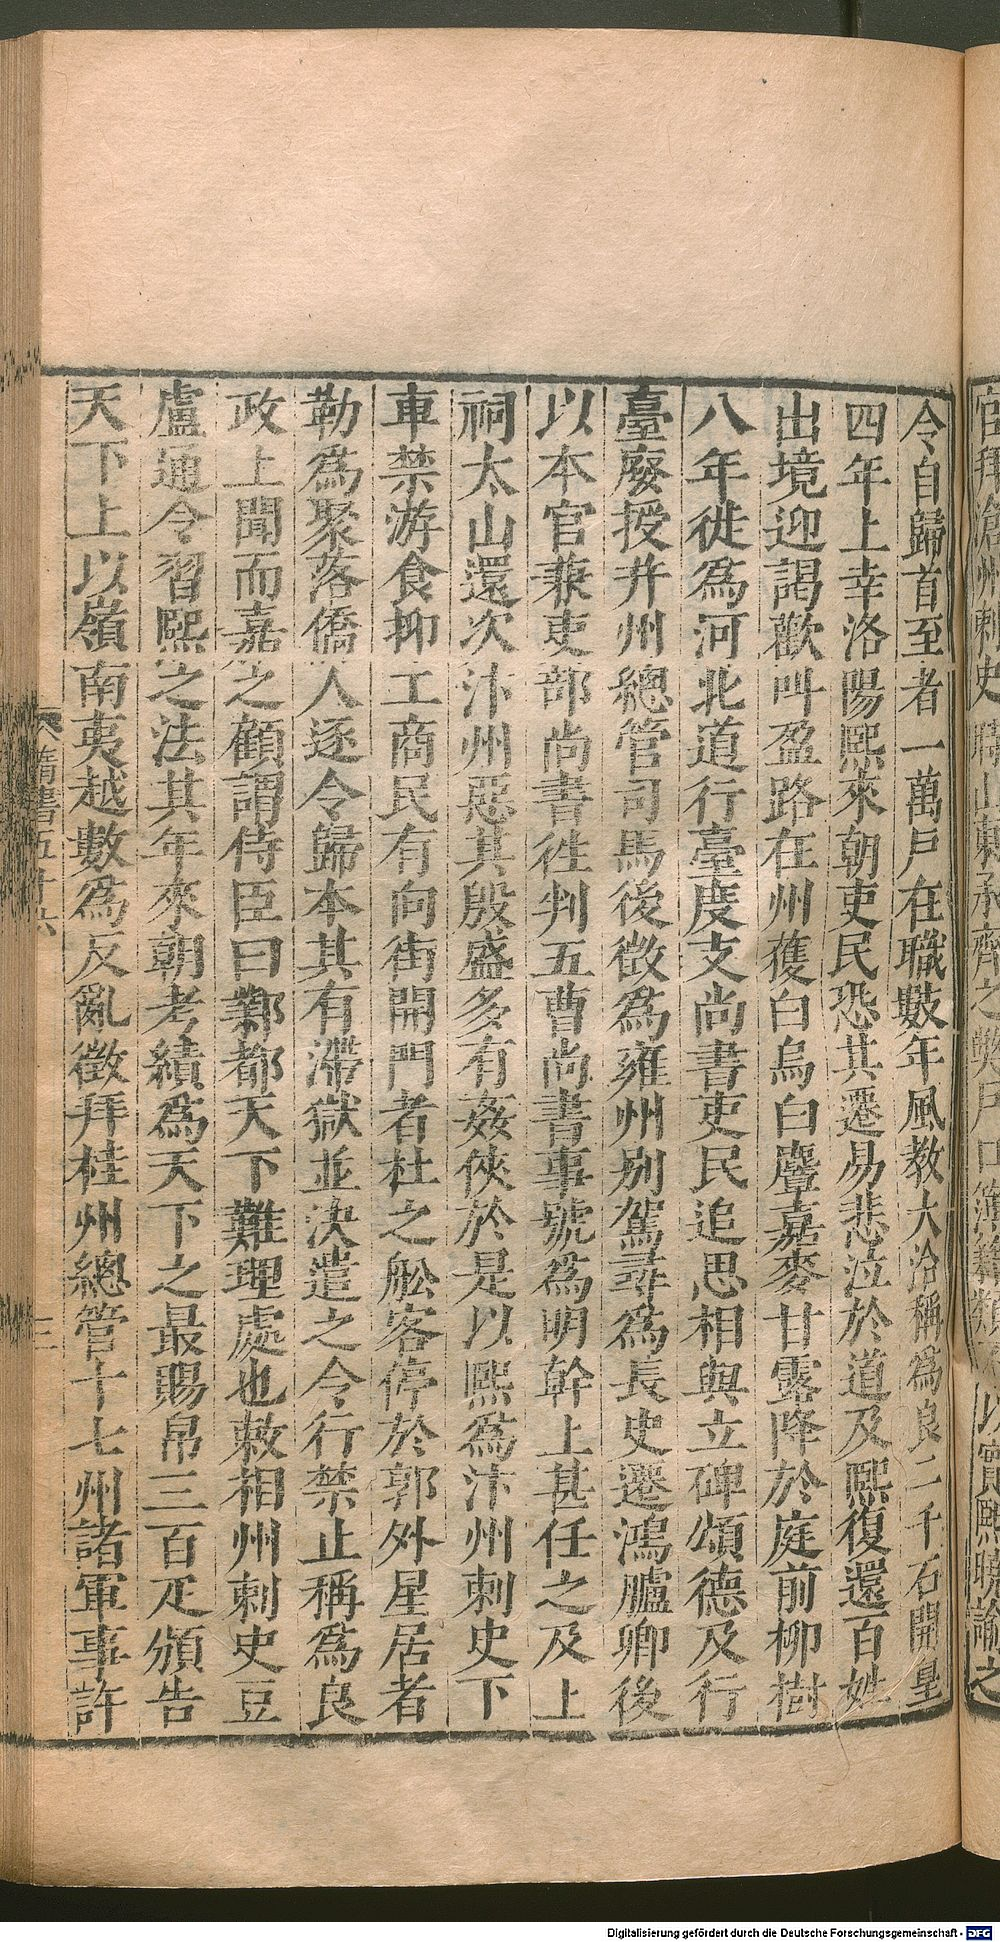 令自歸首至者一萬戶在職數年風教大洽稱爲良二千石開皇
四年上幸洛陽熙來朝吏民恐其遷易悲泣於道及熙復還百姓
出境迎謁歡叫盈路在州獲白烏白麞嘉麥甘露降於庭前柳樹
八年徙爲河北道行臺度支尚書吏民追思相與立碑頌德及行
臺廢授幷州總管司馬後徵爲雍州別駕尋爲長史遷鴻臚卿後
以本官兼吏部尚書徃判五曹尚書事號爲明幹上甚任之及上
祠太山還次汴州惡其殷盛多有姦俠於是以熙爲汴州刺史下
車禁游食抑工商民有向街開門者杜之舩客停於郭外星居者
勒爲聚落僑人逐令歸本其有滯獄並決遣之令行禁止稱爲良
政上聞而嘉之顧謂侍臣曰鄴都天下難理處也敕相州刺史豆
盧通令習熙之法其年來朝考績爲天下之最賜帛三百疋頒告
天下上以嶺南夷越數爲反亂徵拜桂州總管十七州諸軍事許
隋書五十六
三
Digitalisierung gefördert durch die Deutsche Forschungsgemeinschaft - DFG